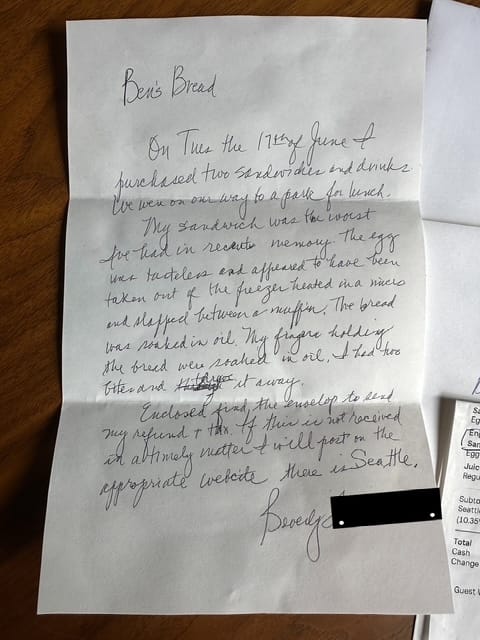 Ben's Bread
On Tues the 17th of June I
purchased two sandwiches and drinks.
We were on our way to a park for lunch.
My sandwich was the worst
I've had in recent memory. The egg
was tasteless and appeared to have been
taken out of the freezer heated in a micro
and slapped between a muffin. The bread
was soaked in oil. My fingers holding
the bread were soaked in oil. I had two
bites and it away.
Enclosed find the envelop to send
my refund + tax. If this is not received
in a timely matter I will post on the
appropriate website there is Seattle.
Beverly
Sa
Eg
Enj
San
Egg
Juic
Regu
Subto
Seattl
(10.35%
Total
Cash
Change
Guest